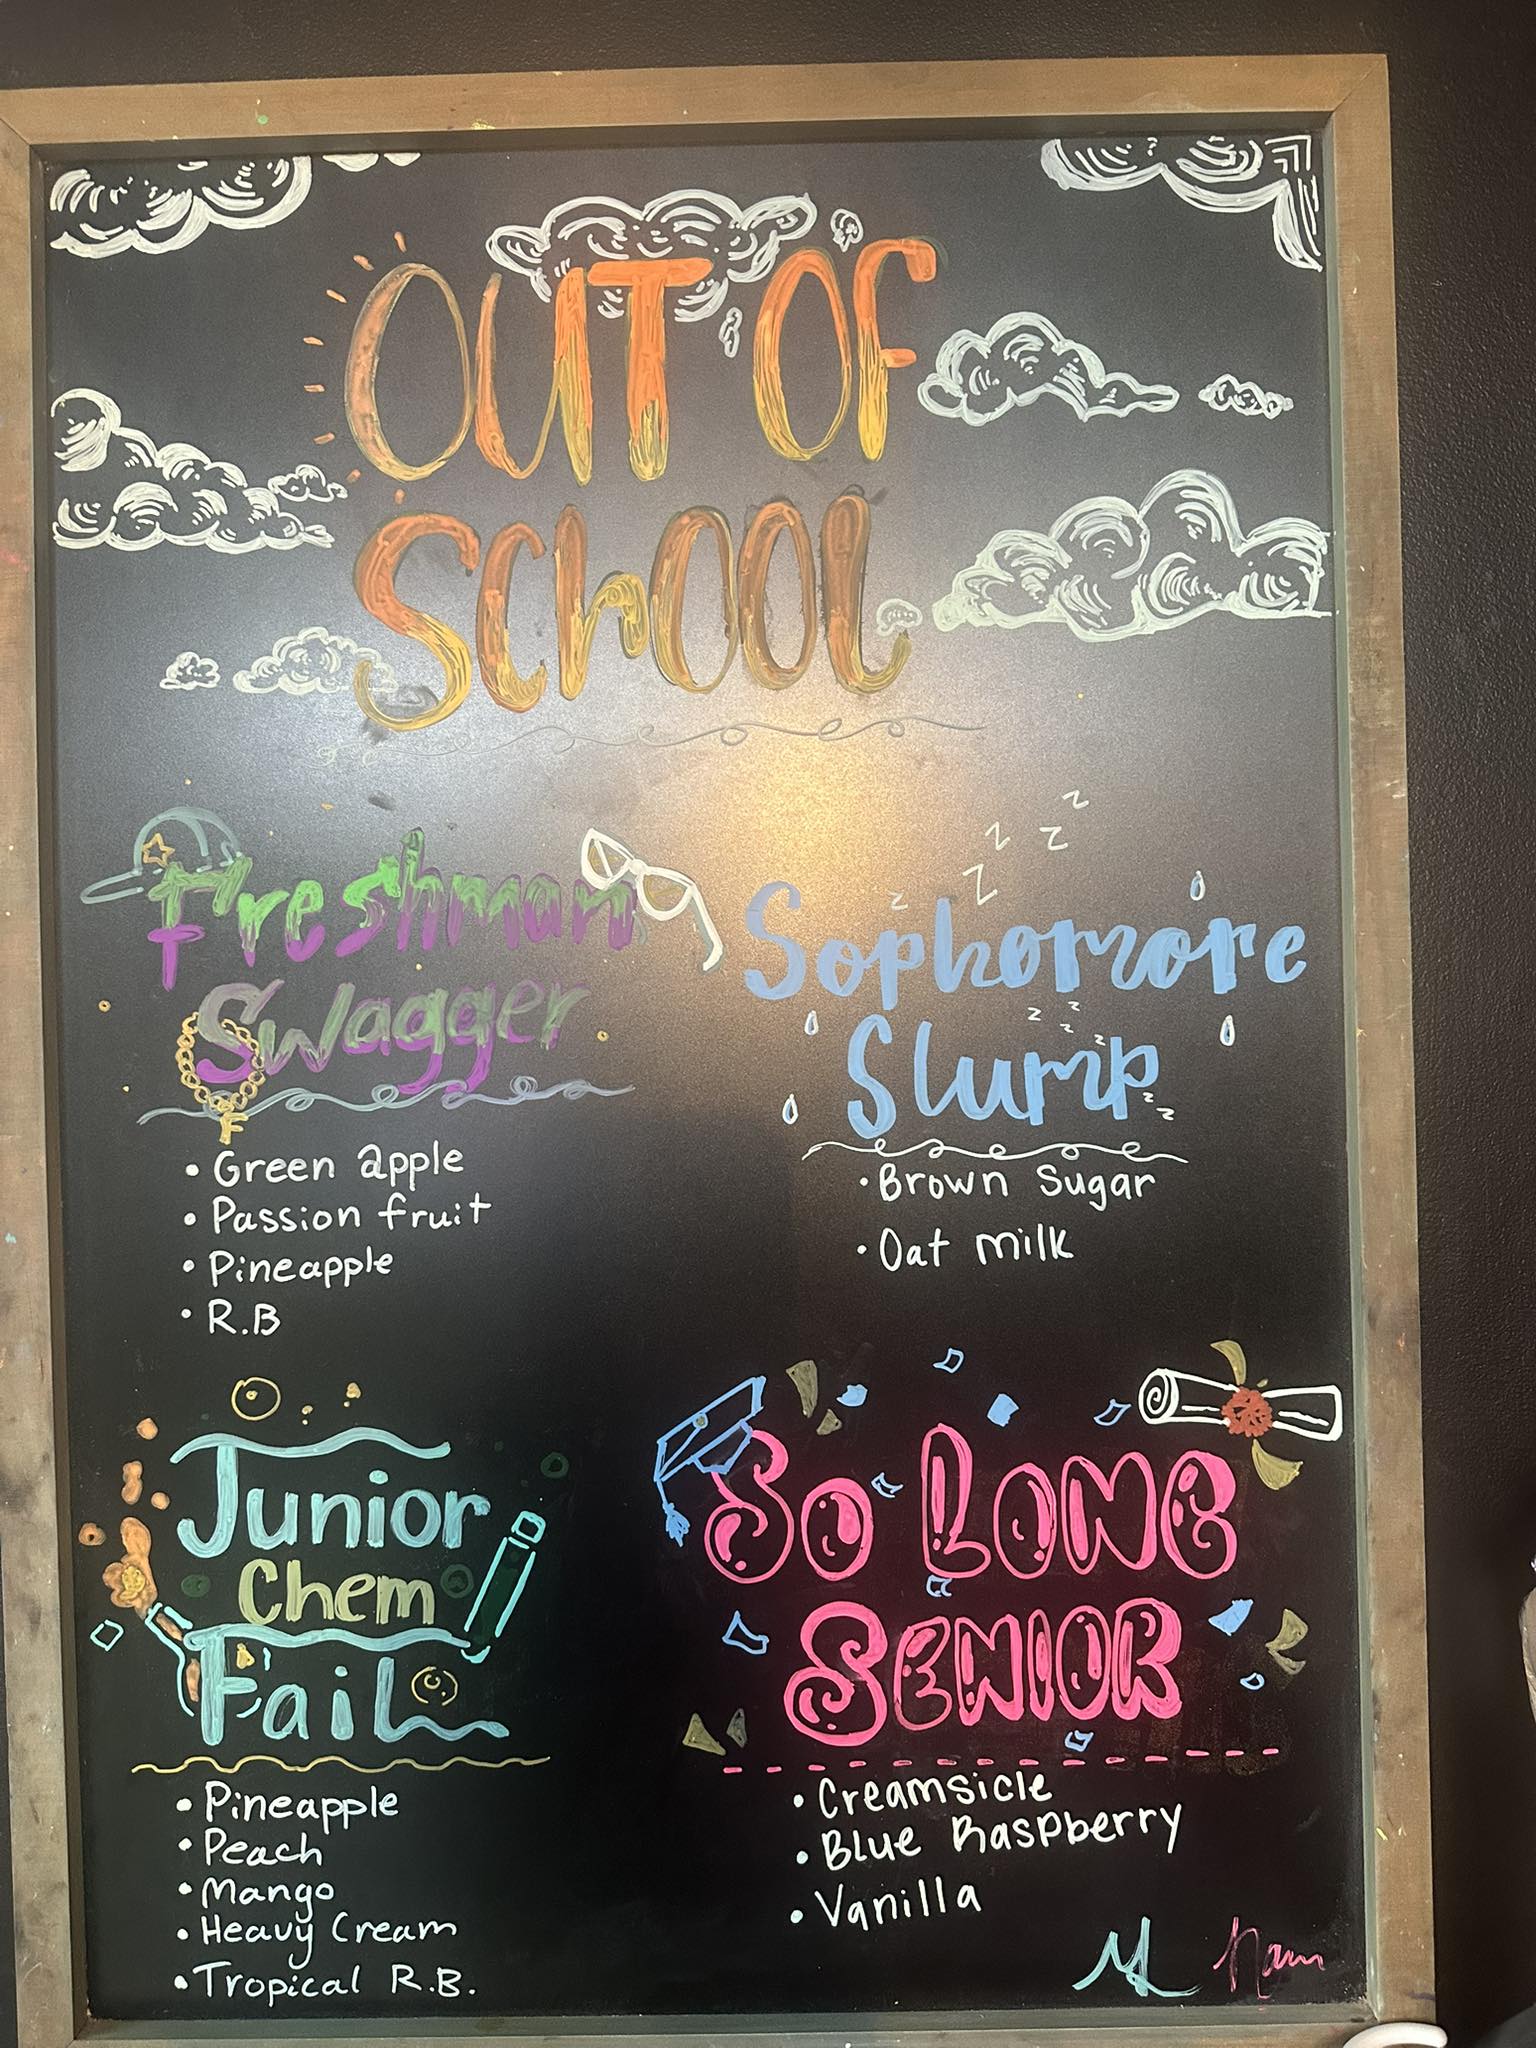 OUT OF
SCHOOL
Freshman
Swagger
F
• Green apple
• Passion fruit
• Pineapple
• R.B
z z z z z
Sophomore
z z z z
Slump
z z z
• Brown Sugar
• Oat milk
Junior
Chem
Fail
• Pineapple
• Peach
• Mango
• Heavy Cream
• Tropical R.B.
SO LONG
SENIOR
• Creamsicle
• Blue Raspberry
• Vanilla